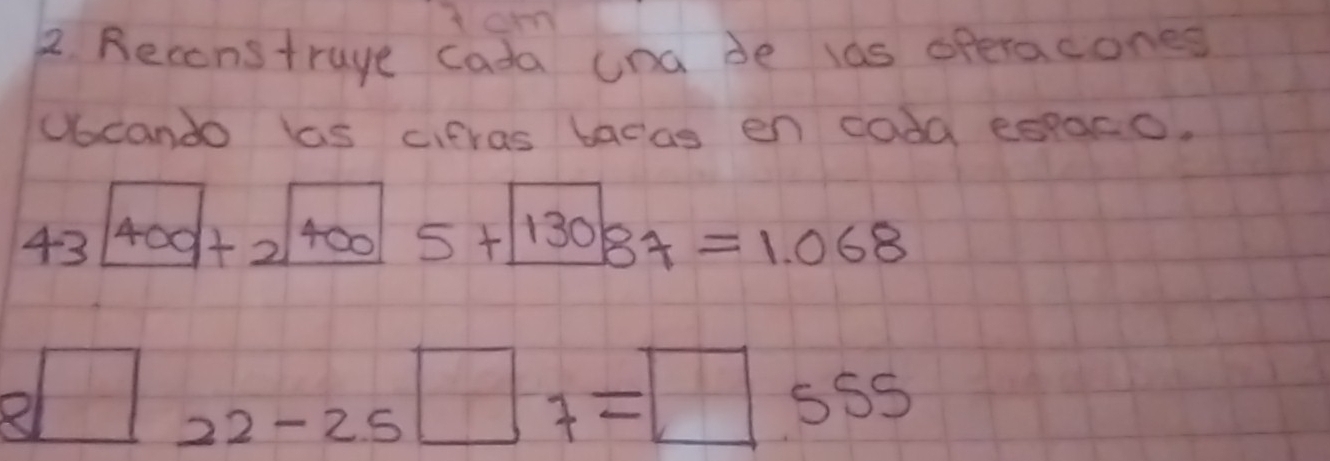 1 cm
2. Reconstruye cada una de las operacones
Ubcando las cifras bacas en cada espaco.
43 400 + 2 400 5 + 130 87 = 1.068
8 22 - 2.5 7 = .555